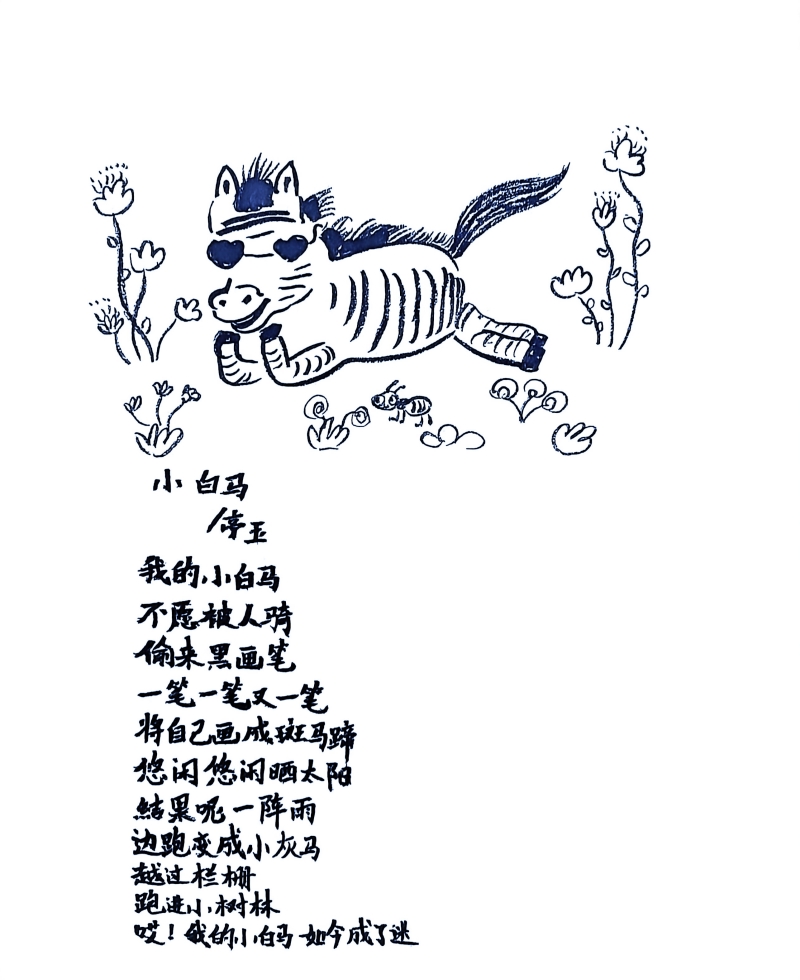 小白马
停玉
我的小白马
不愿被人骑
偷来黑画笔
一笔一笔又一笔
将自己画成斑马蹄
悠闲悠闲晒太阳
结果呢一阵雨
边跑变成小灰马
越过栏栅
跑进小树林
哎！我的小白马如今成了迷